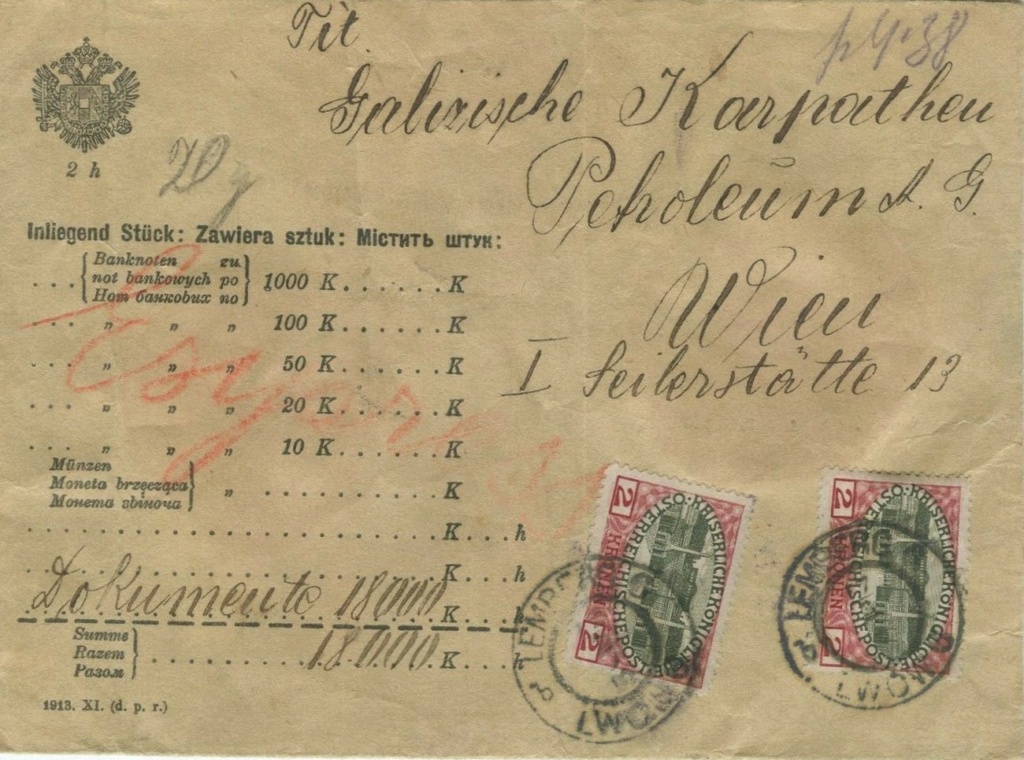 Tit.
p 4.38
Galizische Karpathen
Petroleum A. G.
Wien
I Seilerstätte 13
2 h
20 g
Inliegend Stück: Zawiera sztuk: Містить штук:
Banknoten zu
not bankowych po
Нот банкових по
1000 K. . . . . . .K
„ „ „ 100 K. . . . . . .K
„ „ „ 50 K. . . . . . .K
„ „ „ 20 K. . . . . . .K
„ „ „ 10 K. . . . . . .K
Münzen
Moneta brzęcząca
Монета звінча
„ . . . . . . . . . . . . .K
K. . . .h
K. . . .h
Dokumente 18000 K. . . .h
Summe
Razem
Разом
18000 K. . . .h
1913. XI. (d. p. r.)
2 KRONEN 2
KAISERLICHE KÖNIGLICHE ÖSTERREICHISCHE POST
LEMBERG
LWOW
2 KRONEN 2
KAISERLICHE KÖNIGLICHE ÖSTERREICHISCHE POST
LEMBERG
LWOW